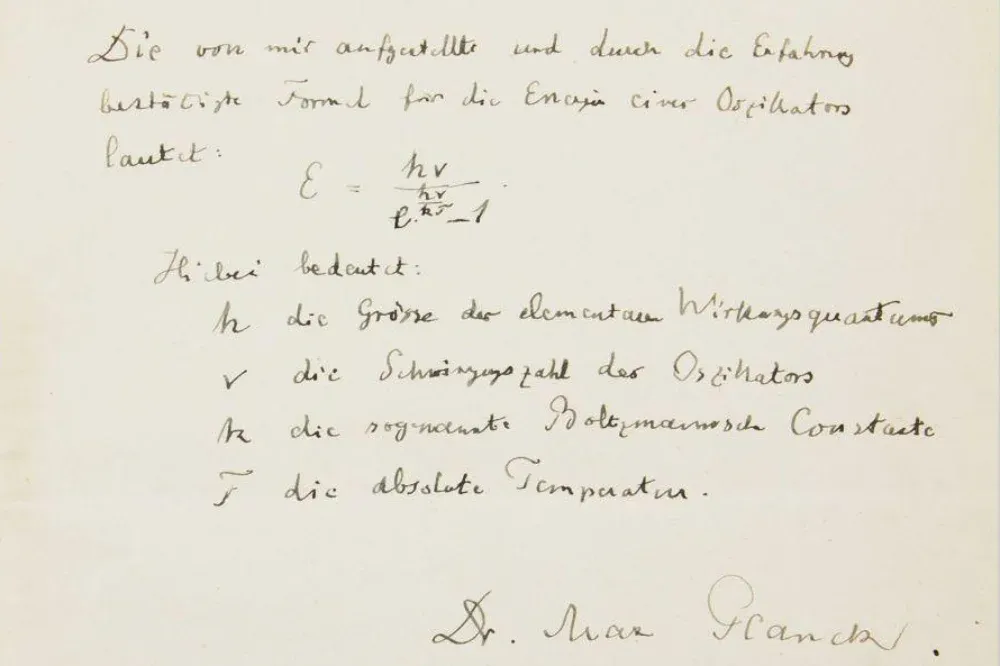 Die von mir aufgestellte und durch die Erfahrung
bestätigte Formel für die Energie eines Oszillators
lautet:
ε = hν / (e^(hν/kT) − 1) .
Hiebei bedeutet:
h die Grösse des elementaren Wirkungsquantums
ν die Schwingungszahl des Oszillators
k die sogenannte Boltzmannsche Constante
T die absolute Temperatur.
Dr. Max Planck.